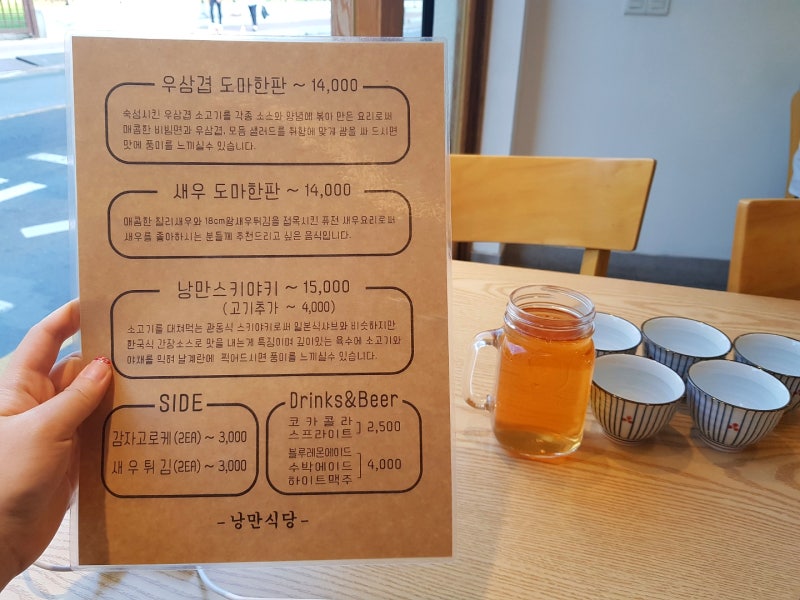 우삼겹 도마한판 ~ 14,000
숙성시킨 우삼겹 소고기를 각종 소스와 양념에 볶아 만든 요리로써
매콤한 비빔면과 우삼겹, 모듬 샐러드를 취향에 맞게 쌈을 싸 드시면
맛에 풍미를 느끼실수 있습니다.
새우 도마한판 ~ 14,000
매콤한 칠리새우와 18cm왕새우튀김을 접목시킨 퓨전 새우요리로써
새우를 좋아하시는 분들께 추천드리고 싶은 음식입니다.
낭만스키야키 ~ 15,000
(고기추가 ~ 4,000)
소고기를 대쳐먹는 관동식 스키야키로써 일본식샤브와 비슷하지만
한국식 간장소스로 맛을 내는게 특징이야 깊이있는 육수에 소고기와
야채를 익혀 날계란에 찍어드시면 풍미를 느끼실수 있습니다.
SIDE
감자고로케(2EA) ~ 3,000
새우튀김(2EA) ~ 3,000
Drinks&Beer
코카콜라
스프라이트 ] 2,500
블루레몬에이드
수박에이드 ] 4,000
하이트맥주
- 낭만식당 -